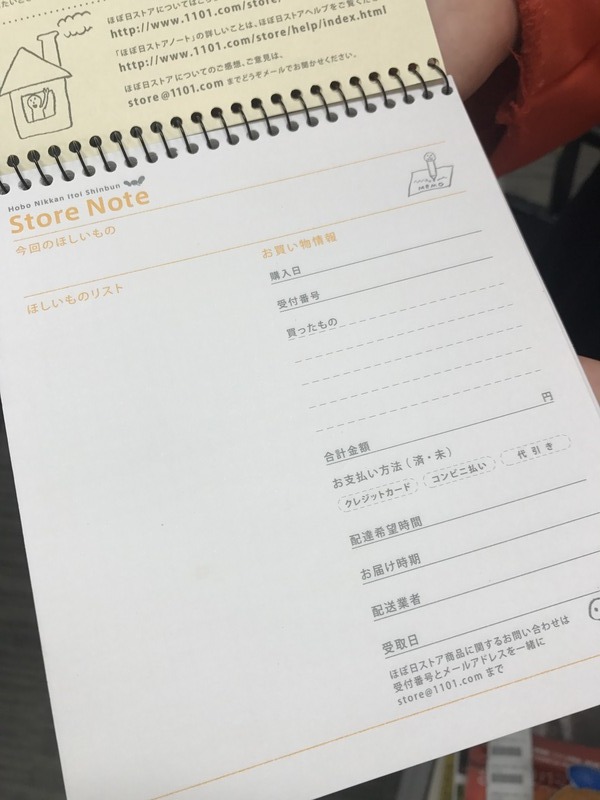 ほぼ日ストアについてはこち
http://www.1101.com/store/
「ほぼ日ストアノート」の詳しいことは、ほぼ日ストアヘルプをご覧くだ
http://www.1101.com/store/help/index.html
ほぼ日ストアについてのご感想、ご意見は、
store@1101.com までどうぞメールでお聞かせください。
Hobo Nikkan Itoi Shinbun
Store Note
MEMO
今回のほしいもの
ほしいものリスト
お買い物情報
購入日
受付番号
買ったもの
円
合計金額
お支払い方法(済・未)
クレジットカード
コンビニ払い
代引き
配達希望時間
お届け時期
配送業者
受取日
ほぼ日ストア商品に関するお問い合わせは
受付番号とメールアドレスを一緒に
store@1101.com まで